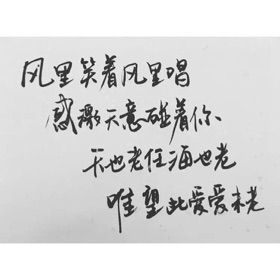 风里笑着风里唱
感激天意碰着你
天也老任海也老
唯望此爱爱未老